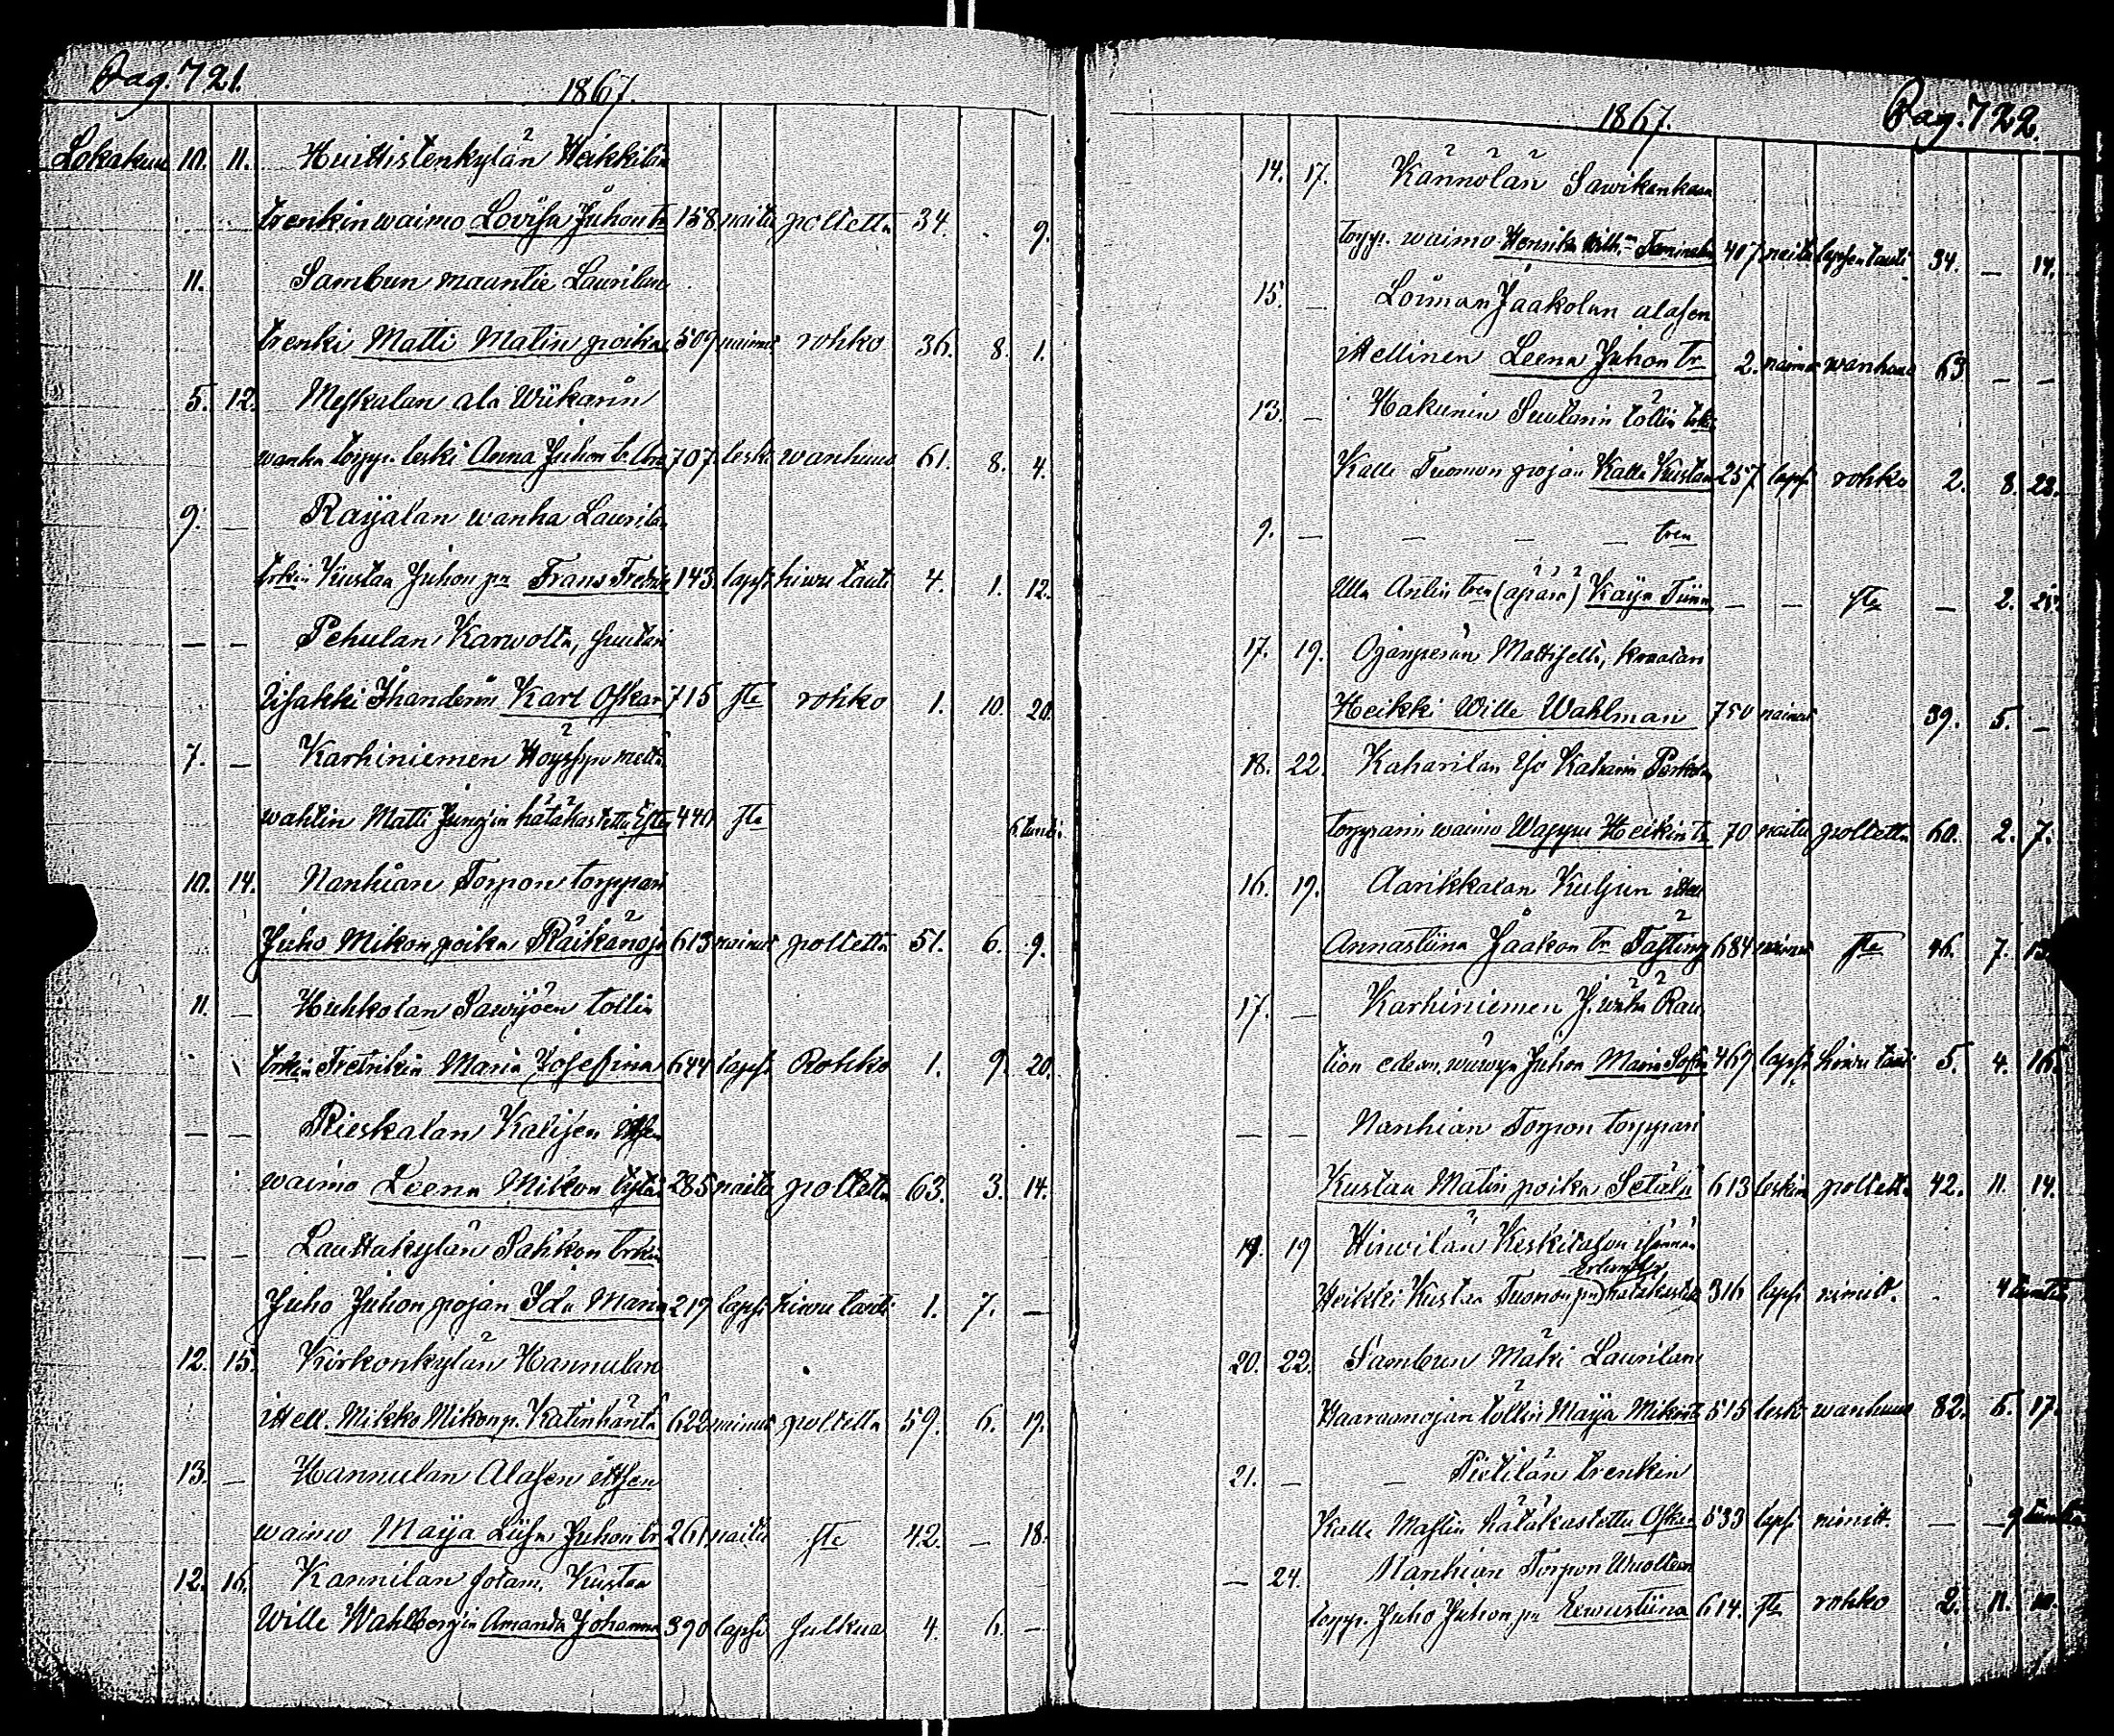 Pag. 721.
1867.
Lokakuu 10. 11. Huittistenkylän Heikkilän
trenkin waimo Lovisa Juhon tr 158 naitu poltetta 34. . 9.
11. Sambun maantie Laurilan
trenki Matti Matin poika 509 naimat rohko 36. 8. 1.
5. 12. Meskalan ala Wiikarin
wanha torpp. leski Anna Juhon tr 707 leski wanhuus 61. 8. 4.
9. — Raijalan wanha Laurilan
trkin Kustaa Juhon pn Frans Fredrik 143 lapsi hinku tauti 4. 1. 12.
— — Pehulan Karwolta, suutari
Iisakki Ihanderin Karl Oskar 715 ste rohko 1. 10. 20.
7. — Karhiniemen
wahtin Matti Jungin hätäkastettu Ester 440 ste 6 tuntia
10. 14. Nanhian Torpon torppari
Juho Mikon poika Räikänoja 613 nainut poltetta 51. 6. 9.
11. — Huhkolan Sawijoen töllin
trkin Fredrikin Maria Josefina 644 lapsi Rohko 1. 9. 20.
— — Rieskalan Kalisen
waimo Leena Mikon tytär 285 naitu poltetta 63. 3. 14.
— — Lauttakylän Sahkon trkin
Juho Juhon pojan Ida Maria 219 lapsi hinku tauti 1. 7. —
12. 15. Kirkonkylän Hannulan
itsell. Mikko Mikon p. Katinhäntä 622 nainut poltetta 59. 6. 19.
13. — Hannulan Alasen itsen
waimo Maija Liisa Juhon tr 261 naitu ste 42. — 18.
12. 16. Kannilan sotam. Kustaa
Wille Wahlbergin Amanda Johanna 390 lapsi julkua 4. 6. —
1867. Pag. 722.
14. 17. Kännölän Sawikonkaan
torpp. waimo Henrika Wilh. 407 naitu lapsentauti 34. — 14.
15. — Loiman Jaakolan alasen
itsellinen Leena Juhon tr 2. naimat wanhuus 63. — —
13. — Hakunin Suutarin töllin trkin
Kalle Tuomon pojan Kalle Kustaa 257 lapsi rohko 2. 8. 28.
9. — — — — tren
Ulla Antin tren (äpärä) Kaija Tiina — — ste — 2. 25.
17. 19. Ojanperän Mattisella, kraatari
Heikki Wille Wahlman 750 nainut 39. 5. —
18. 22. Kaharilan Iso Kaharin Perkola
torpparin waimo Wappu Heikin tr 70 naitu poltetta 60. 2. 7.
16. 19. Aarikkalan Kuljun itsel
Annastiina Jaakon tr Tasting 684 nainut ste 46. 7. 13.
17. — Karhiniemen J. wähä Rau
tion edesm. wäwyn Juhon Maria Sofia 469 lapsi hinku tauti 5. 4. 16.
— — Nanhian Torpon torppari
Kustaa Matin poika Setälä 613 leskim poltetta 42. 11. 14.
19. 19 Hirwilän Keskitalon isännän
Heikki Kustaa Tuomon pn hätäkastettu 316 lapsi nimitt. . 4 tuntia
20. 22. Sambun Mäki Laurilan
Haaraanojan töllin Maija Mikon tr 515 lesk wanhuus 82. 5. 17.
21. — — Pietilän trenkin
Kalle Maslin hätäkastettu Oskar 533 lapsi nimitt. — — 9 tuntia
— 24. Nanhian Torpon Wuolteen
torpp. Juho Juhon pn Eewastiina 614. ste rohko 2. 11. 10.